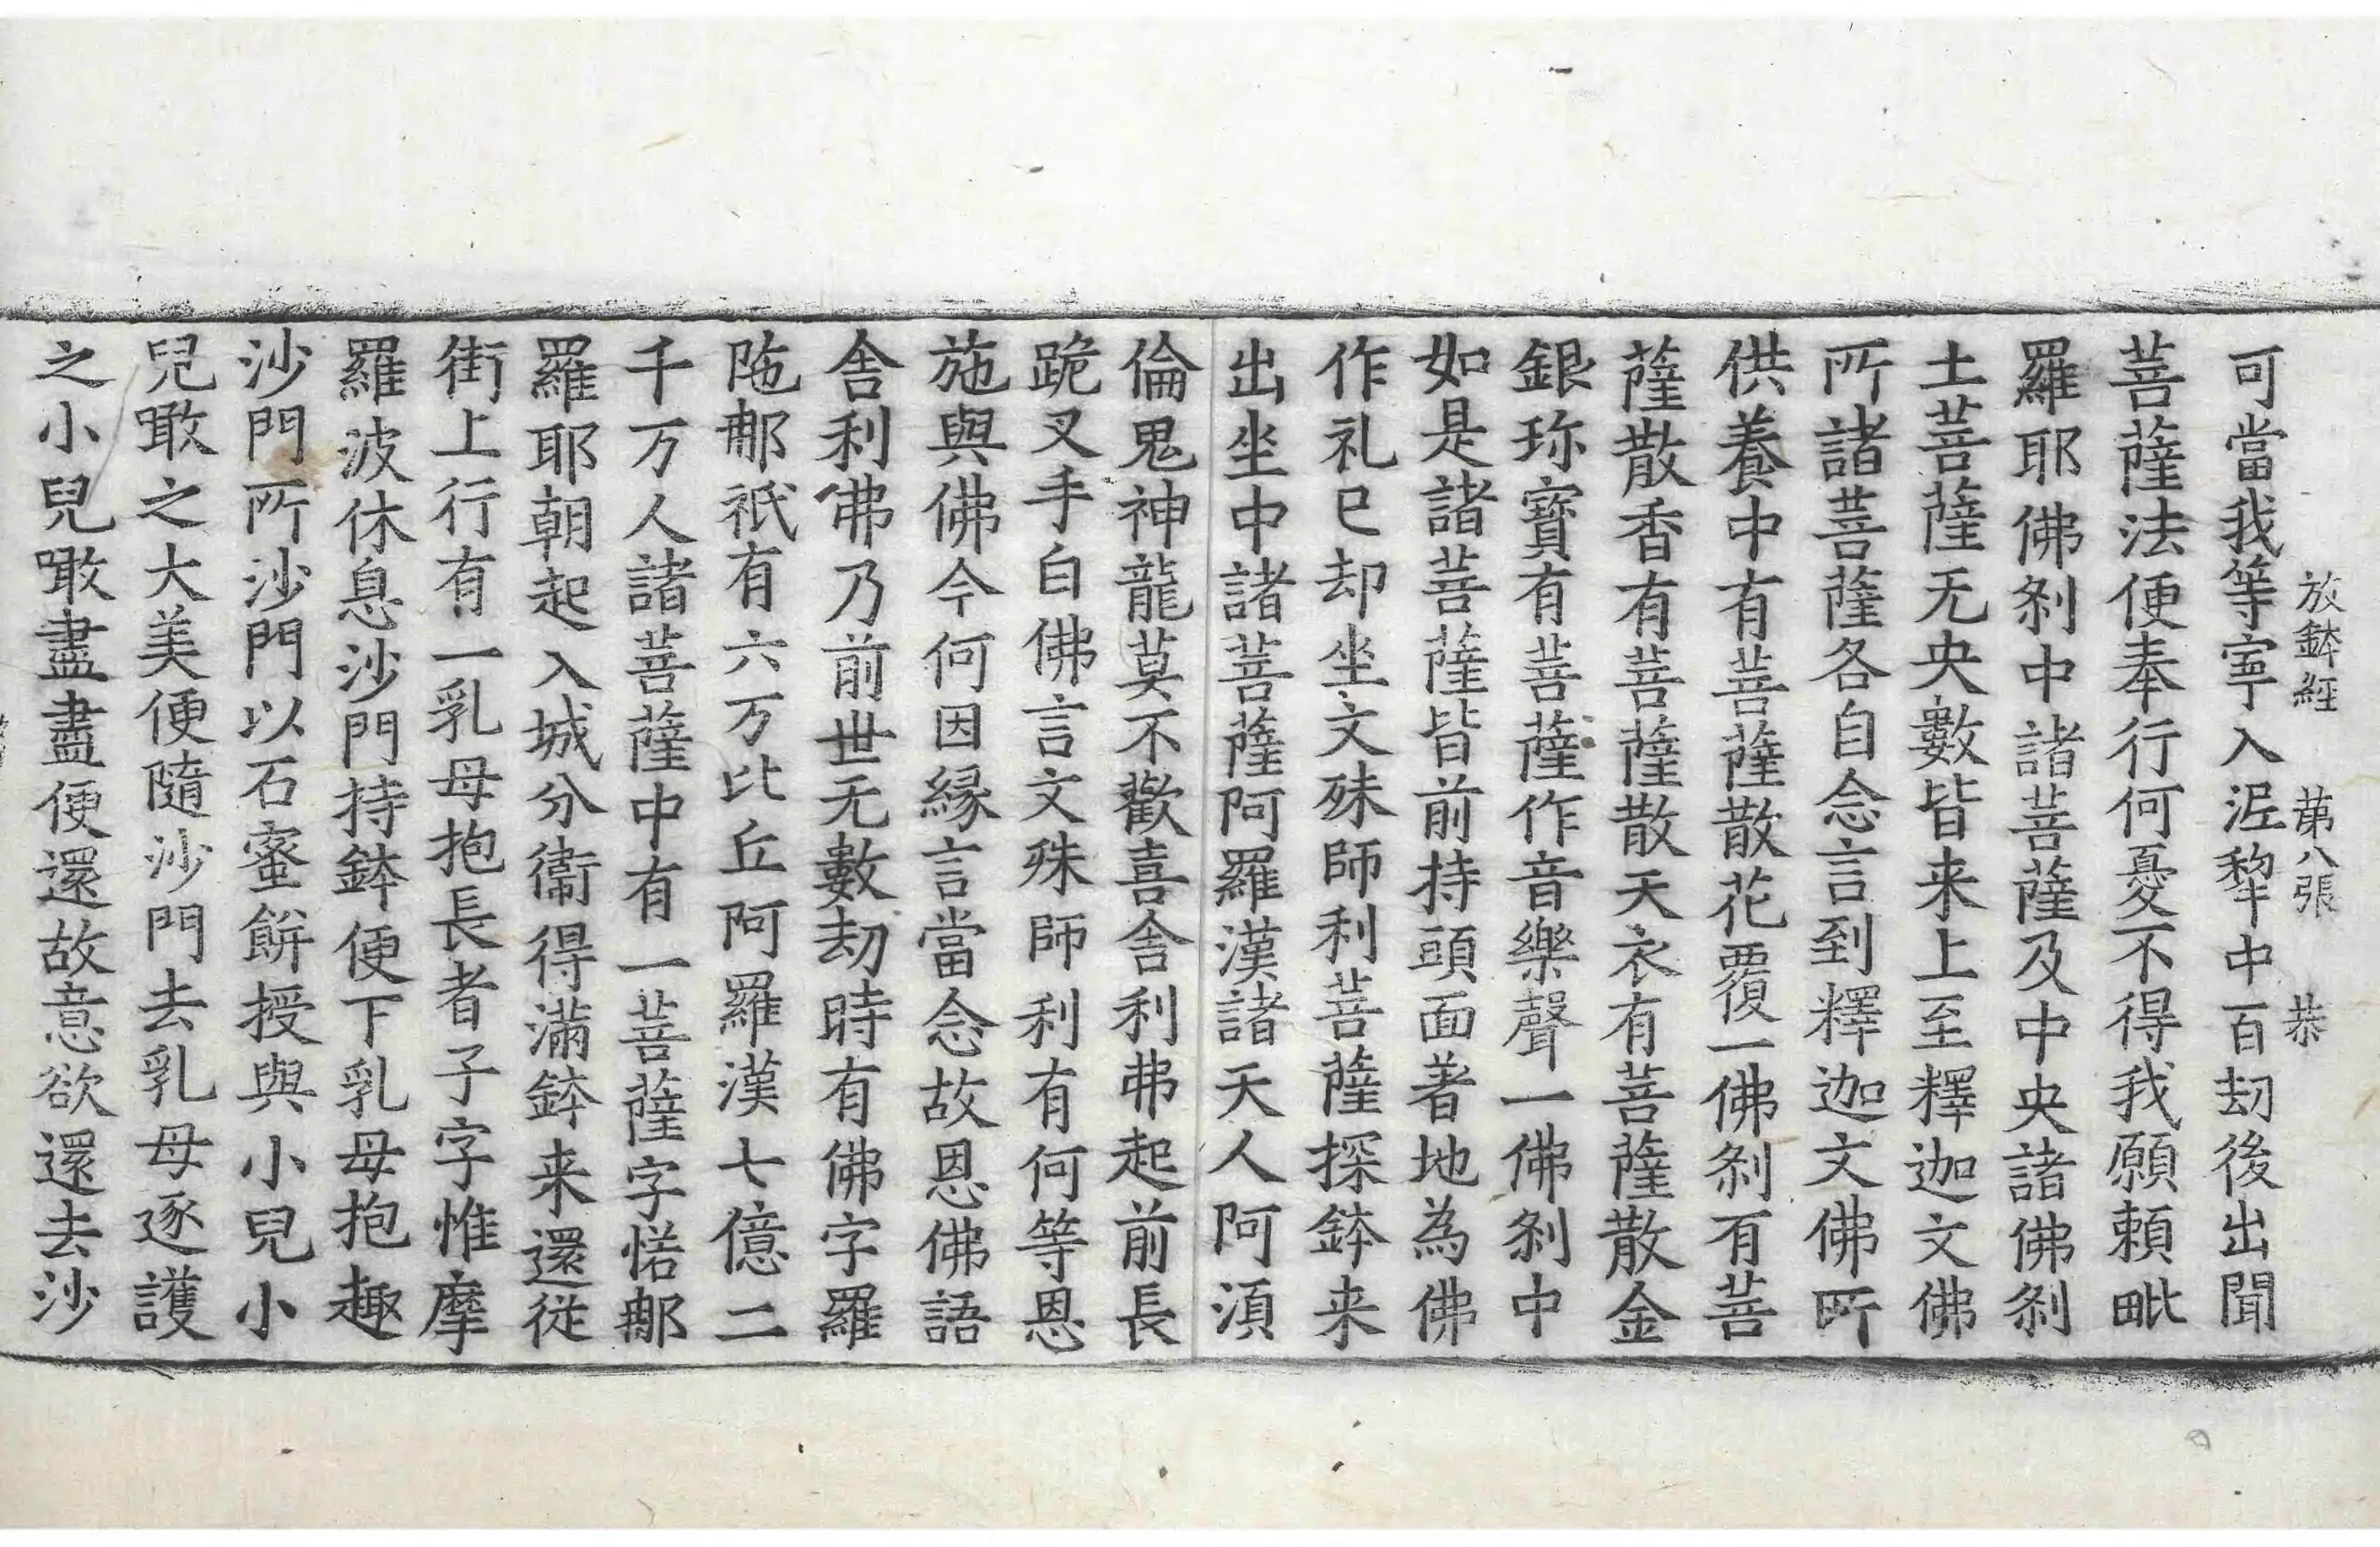 放鉢経 第八張 恭
可當我等寧入泥犂中百劫後出聞
菩薩法便奉行何憂不得我願頼毗
羅耶佛刹中諸菩薩及中央諸佛刹
土菩薩无央數皆来上至釋迦文佛
所諸菩薩各自念言到釋迦文佛所
供養中有菩薩散花覆一佛刹有菩
薩散香有菩薩散天衣有菩薩散金
銀珎寳有菩薩作音樂聲一佛刹中
如是諸菩薩皆前持頭面著地為佛
作礼已却坐文殊師利菩薩探鉢来
出坐中諸菩薩阿羅漢諸天人阿須
倫鬼神龍莫不歡喜舎利弗起前長
跪叉手白佛言文殊師利有何等恩
施與佛今何因縁言當念故恩佛語
舎利弗乃前世无數劫時有佛字羅
陁郍祇有六万比丘阿羅漢七億二
千万人諸菩薩中有一菩薩字惹郍
羅耶朝起入城分衞得滿鉢来還従
街上行有一乳母抱長者子字惟摩
羅波休息沙門持鉢便下乳母抱趣
沙門所沙門以石蜜餅授與小兒小
兒噉之大美便隨沙門去乳母逐護
之小兒噉盡盡便還故意欲還去沙